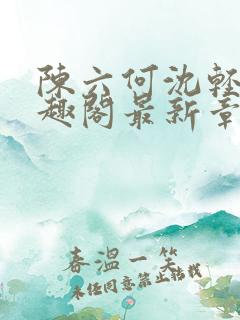 陳六何沈輕
趣閣最新章
春溫一笑
未经同意禁止转载